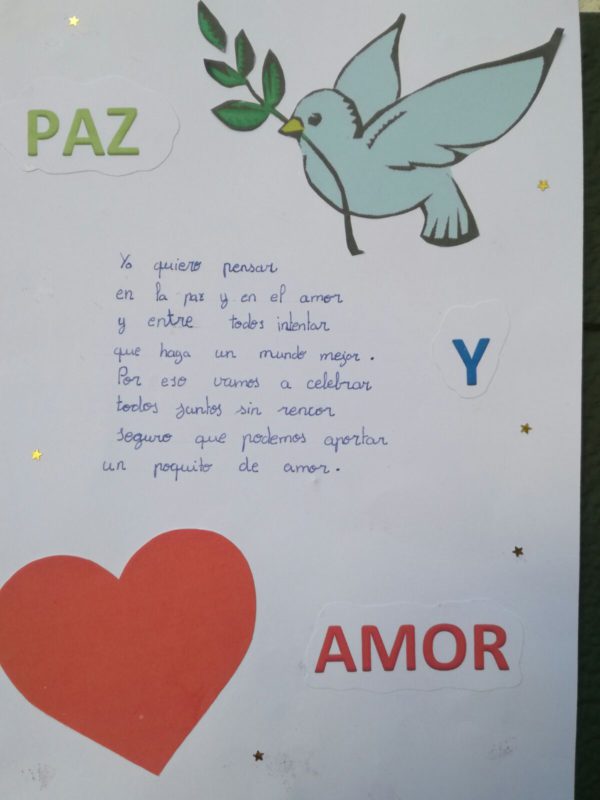 PAZ
Yo quiero pensar
en la paz y en el amor
y entre todos intentar
que haga un mundo mejor.
Por eso vamos a celebrar
todos juntos sin rencor
seguro que podemos aportar
un poquito de amor.
Y
AMOR